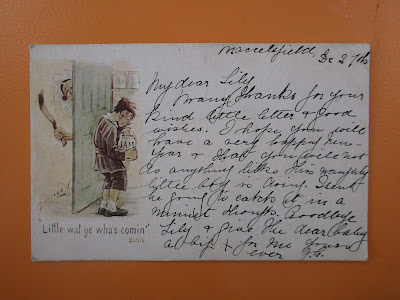 Macclesfield, De 27th
My dear Lily
Many thanks for your
kind little letter & good
wishes. I hope you will
have a very happy new
Year & that you will not
do anything like this naughty
little boy is doing. Isn't
he going to catch it in a
minute though. Goodbye
Lily & give the dear baby
a big + for me yours
ever
JAM
"Little wat ye wha's comin'"
BURNS